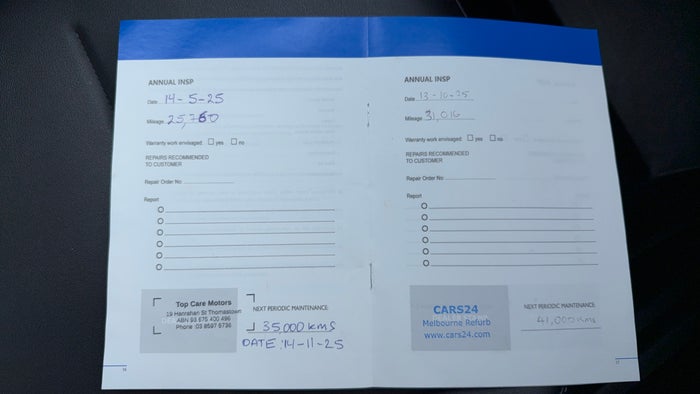 ANNUAL INSP
Date 14-5-25
Mileage 25,760
Warranty work envisaged: yes no
REPAIRS RECOMMENDED
TO CUSTOMER
Repair Order No:
Report
Top Care Motors
19 Hanrahan St Thomastown
ABN 93 675 400 496
Phone 03 8597 6736
NEXT PERIODIC MAINTENANCE:
35,000 kms
DATE: 14-11-25
ANNUAL INSP
Date 13-10-25
Mileage 31,016
Warranty work envisaged: yes no
REPAIRS RECOMMENDED
TO CUSTOMER
Repair Order No:
Report
CARS24
Melbourne Refurb
www.cars24.com
NEXT PERIODIC MAINTENANCE:
41,000 kms